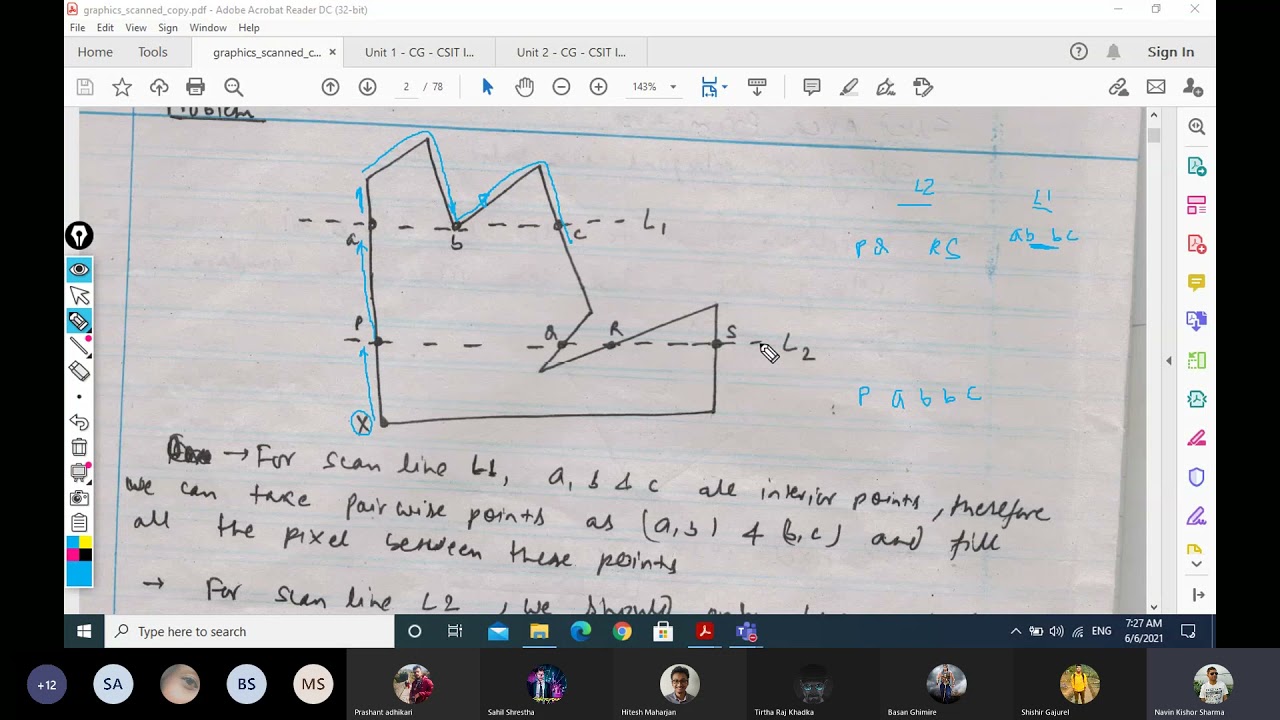 graphics_scanned_copy.pdf - Adobe Acrobat Reader DC (32-bit)
File Edit View Sign Window Help
Home Tools graphics_scanned_c... × Unit 1 - CG - CSIT I... Unit 2 - CG - CSIT I... Sign In
2 / 78 143%
Problem
L2 L1
PQ RS ab bc
a b c L1
P Q R S L2
P a b b c
X
→ For scan line L1, a, b & c are interior points, therefore
we can take pairwise points as (a,b) & (b,c) and fill
all the pixel between these points
→ For scan line L2, we should only
Type here to search
ENG 7:27 AM
6/6/2021
+12 SA BS MS
Prashant adhikari Sahil Shrestha Hitesh Maharjan Tirtha Raj Khadka Basan Ghimire Shishir Gajurel Navin Kishor Sharma